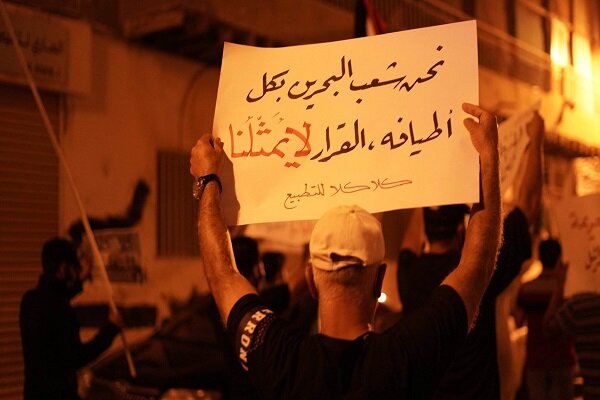 نحن شعب البحرين بكل
أطيافه، القرار لا يُمثّلُنا
كلا كلا للتطبيع